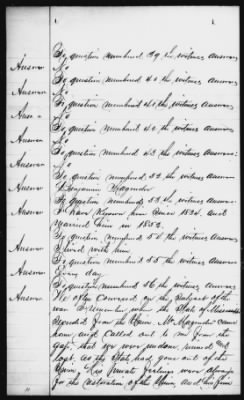 To question numbered 39 the witness answers
Answer No
To question numbered 40 the witness answers
Answer No
To question numbered 41 the witness answers
Answer No
To question numbered 42 the witness answers
Answer No
To question numbered 43 the witness answers
Answer No
To question numbered 52 the witness answers
Answer Benjamin
To question numbered 53 the witness answers
Answer I have known him since 1834, and
married him in 1852.
To question numbered 54 the witness answers
Answer I lived with him
To question numbered 55 the witness answers
Answer Every day
To question numbered 56 the witness answers
Answer We often conversed on the subject of the
war. I remember when the State of Mississippi
seceded from the Union. Mr. came
home and called to me from the
gate, that we were undone, ruined and
lost, as the State had gone out of the
Union, His private feelings were always
for the restoration of the Union, and his